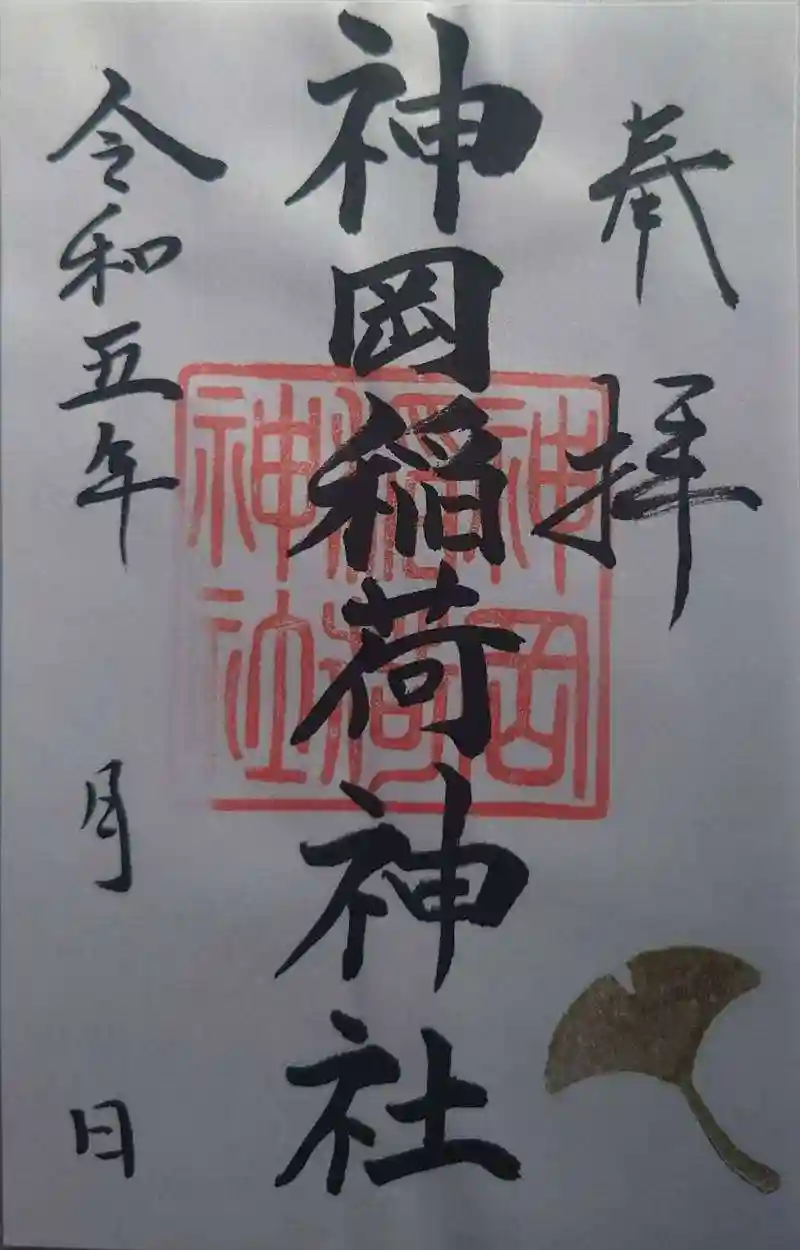 奉拝
神岡稲荷神社
神岡稲荷神社
令和五年 月 日